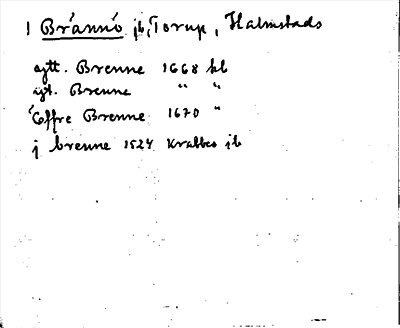 1 Brännö jb, Torup, Halmstads
ytt. Brenne 1668 kl
yt. Brenne " "
Öffre Brenne 1670 "
j brenne 1524 Krabbes jb